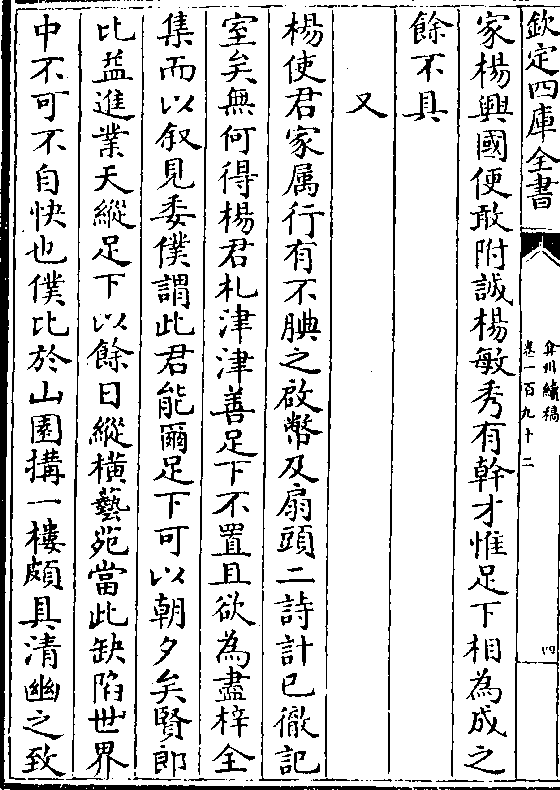 欽定四庫全書
弇州續稿
卷一百九十二
四
家楊興國便敢附誠楊敏秀有幹才惟足下相為成之
餘不具
又
楊使君家属行有不腆之啟幣及扇頭二詩計已徹記
室矣無何得楊君札津津善足下不置且欲為盡梓全
集而以叙見委僕謂此君能爾足下可以朝夕矣賢郎
比益進業天縱足下以餘日縱橫藝苑當此缺陷世界
中不可不自快也僕比於山園搆一樓頗具清幽之致